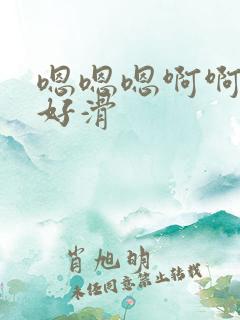 嗯嗯嗯啊啊
好滑
肖旭明
未经同意禁止转载